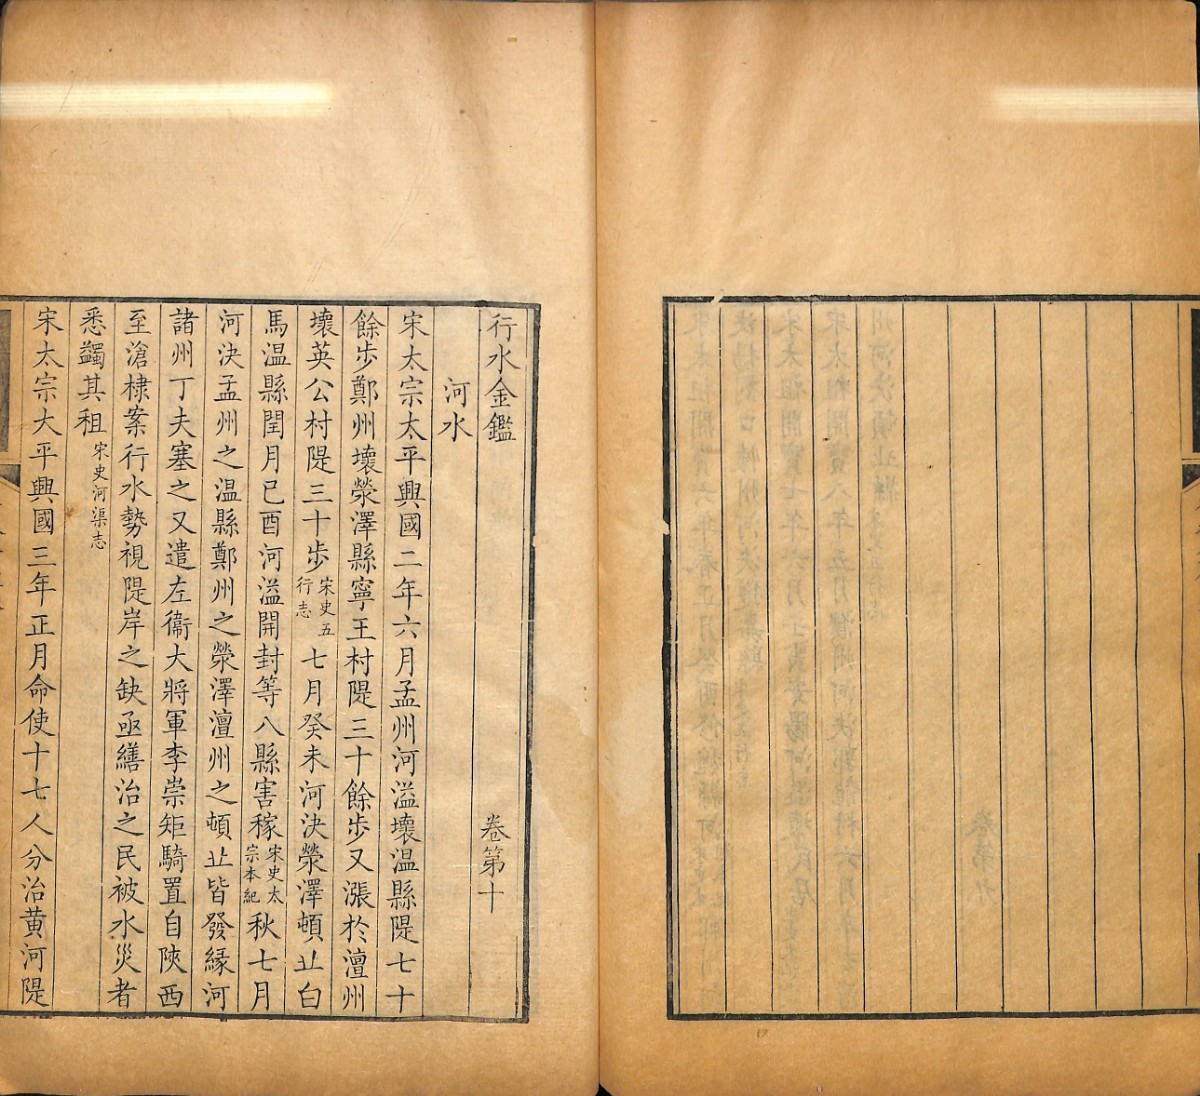 行水金鑑　卷第十
河水
宋太宗太平興國二年六月孟州河溢壞温縣隄七十
餘步鄭州壞滎澤縣寧王村隄三十餘步又漲於澶州
壞英公村隄三十步宋史五行志七月癸未河決滎澤頓丘白
馬温縣閏月己酉河溢開封等八縣害稼宋史太宗本紀秋七月
河決孟州之温縣鄭州之滎澤澶州之頓丘皆發緣河
諸州丁夫塞之又遣左衞大將軍李崇矩騎置自陝西
至滄棣案行水勢視隄岸之缺亟繕治之民被水災者
悉蠲其租宋史河渠志
宋太宗大平興國三年正月命使十七人分治黄河隄